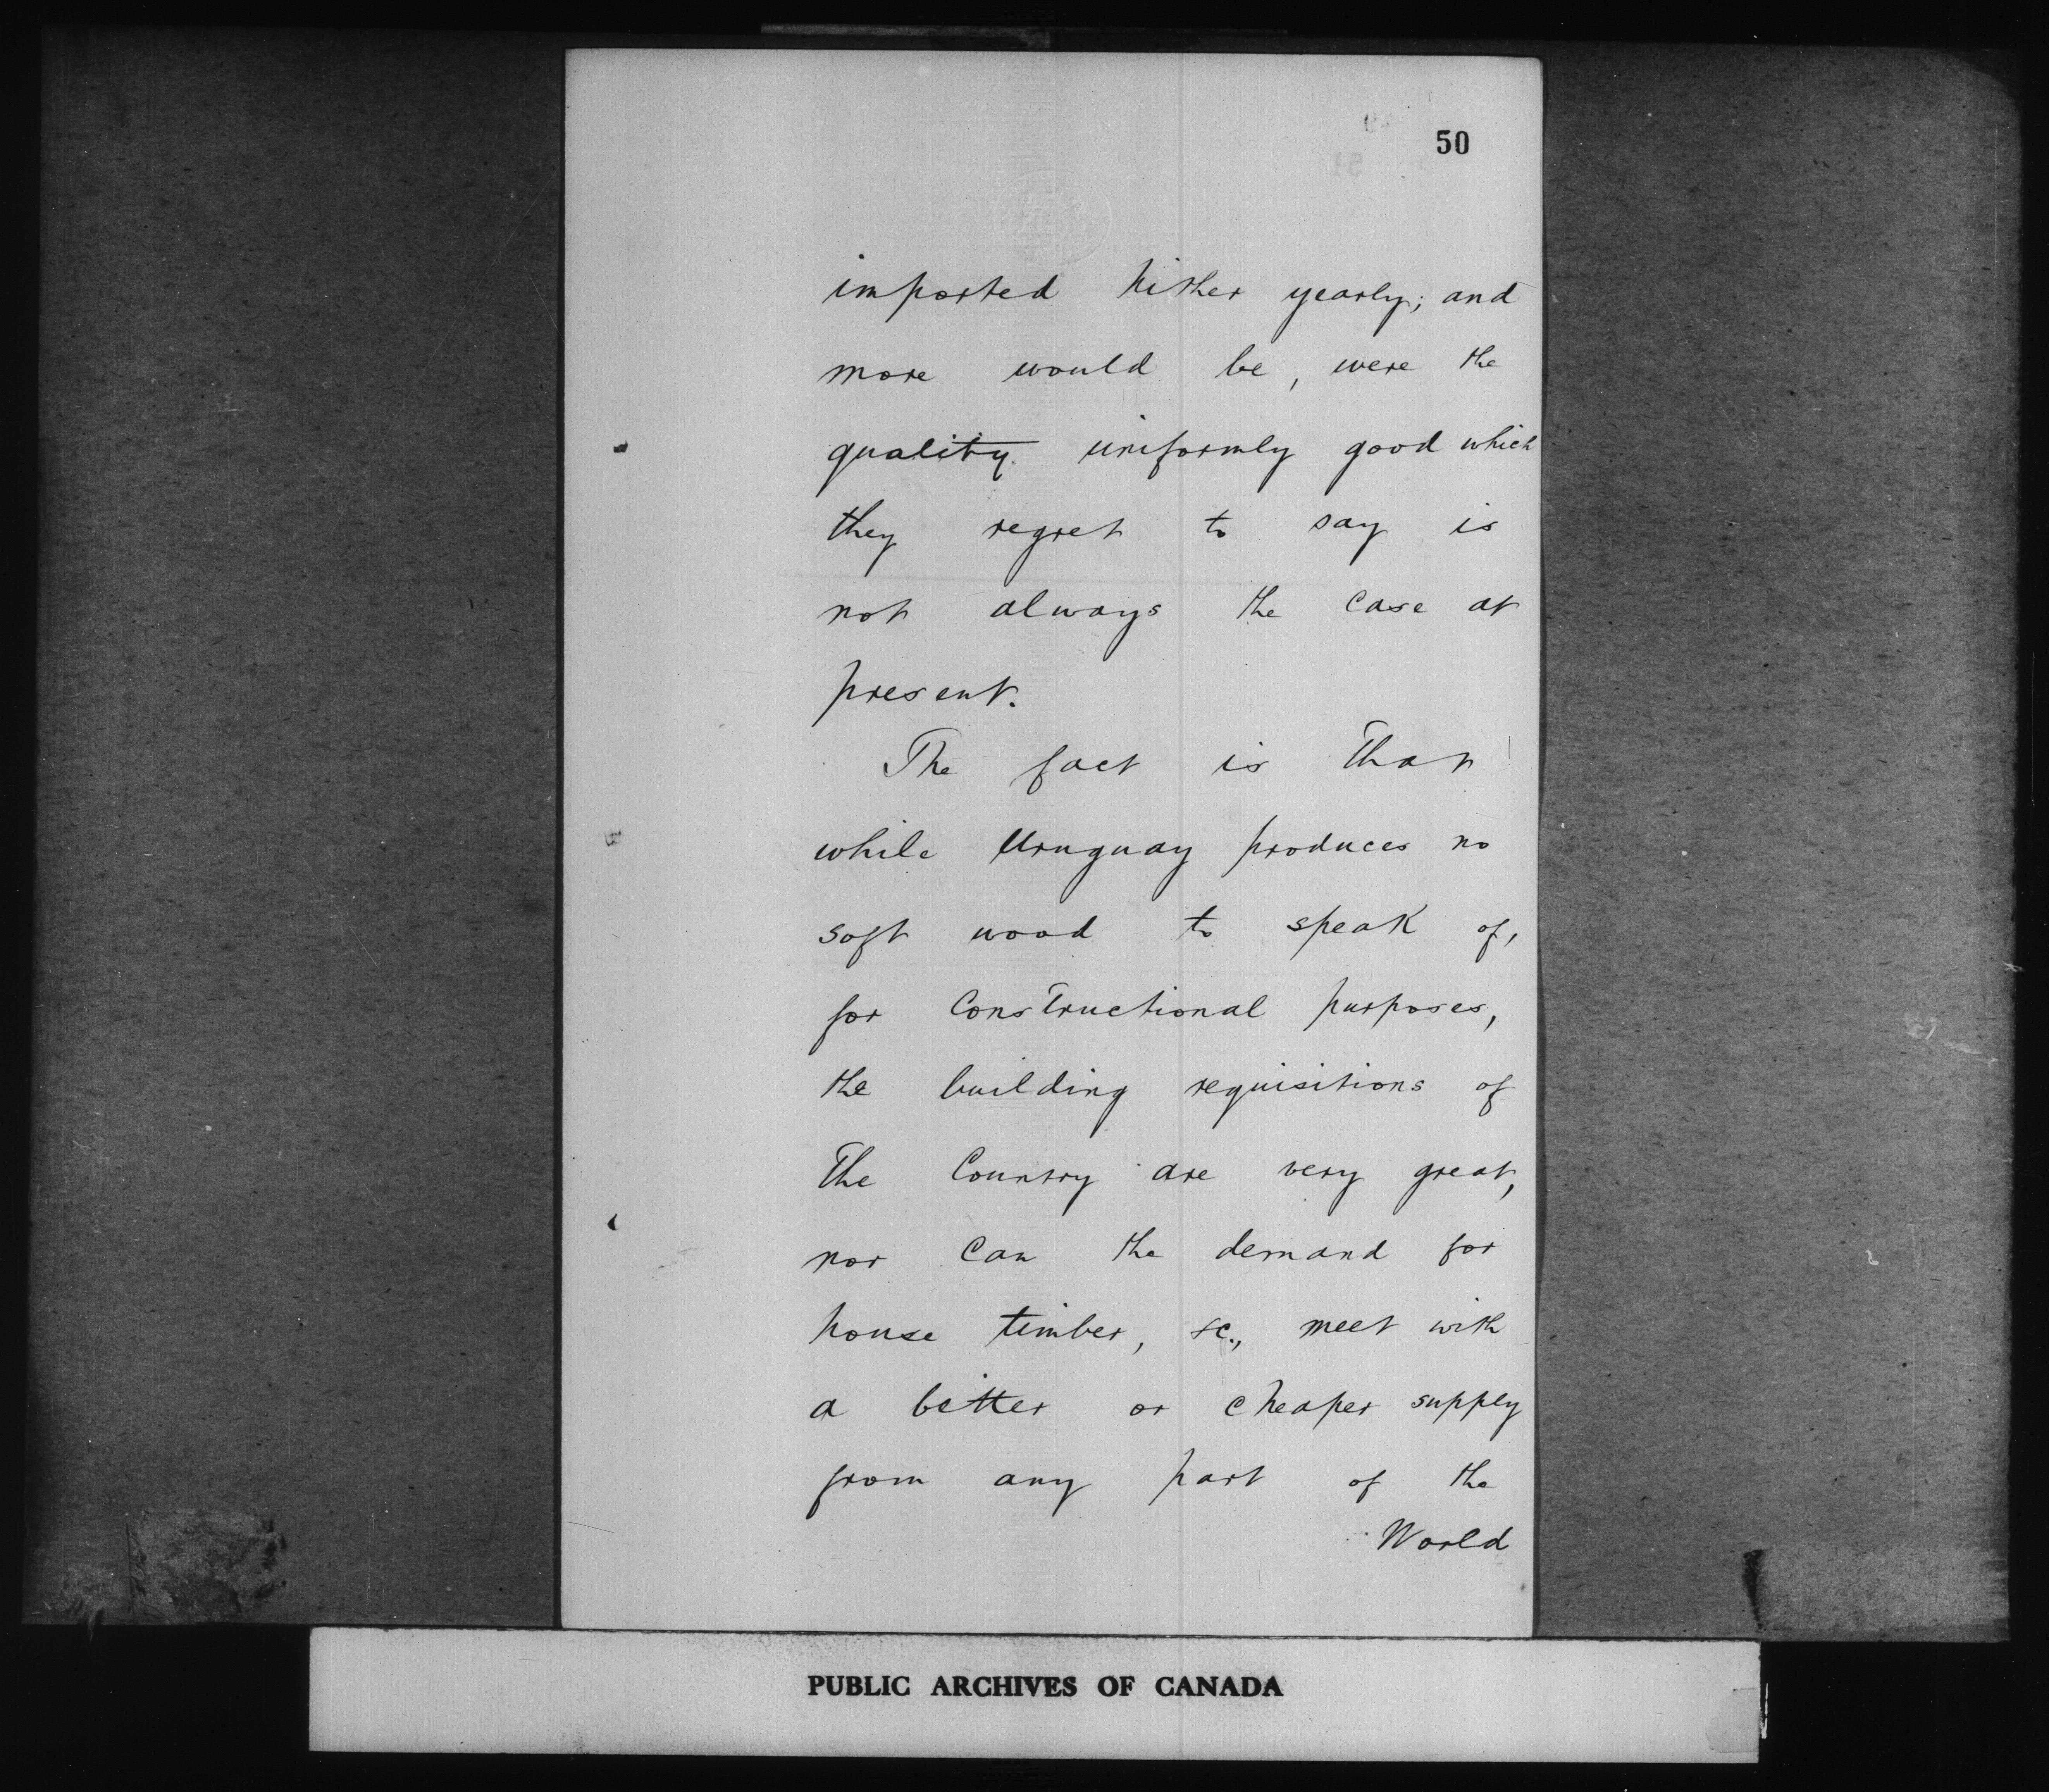 50
imported hither yearly; and
more would be, were the
quality uniformly good which
they regret to say is
not always the case at
present.
The fact is that
while Uruguay produces no
soft wood to speak of,
for Constructional purposes,
the building requisitions of
The Country are very great,
nor can the demand for
house timber, &c., meet with
a better or cheaper supply
from any part of the
World
PUBLIC ARCHIVES OF CANADA